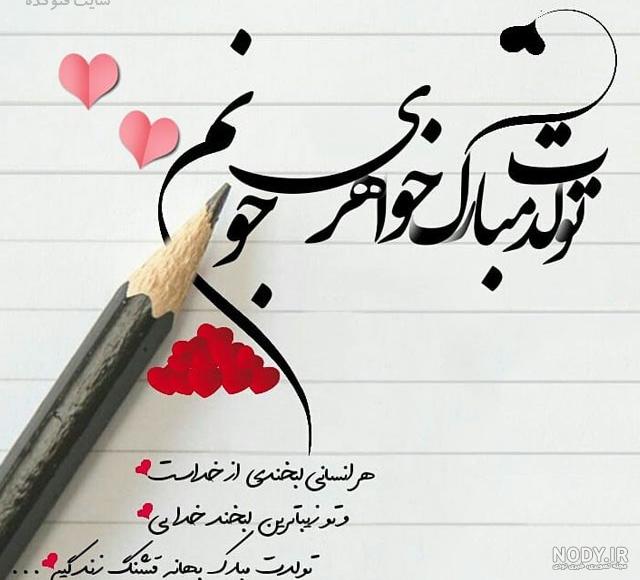 سایت فتوکده
تولدت مبارک خواهری جونم
هر انسانی لبخندی از خداست
و تو زیباترین لبخند خدایی
تولدت مبارک بهانه قشنگ زندگیم...
NODY.IR